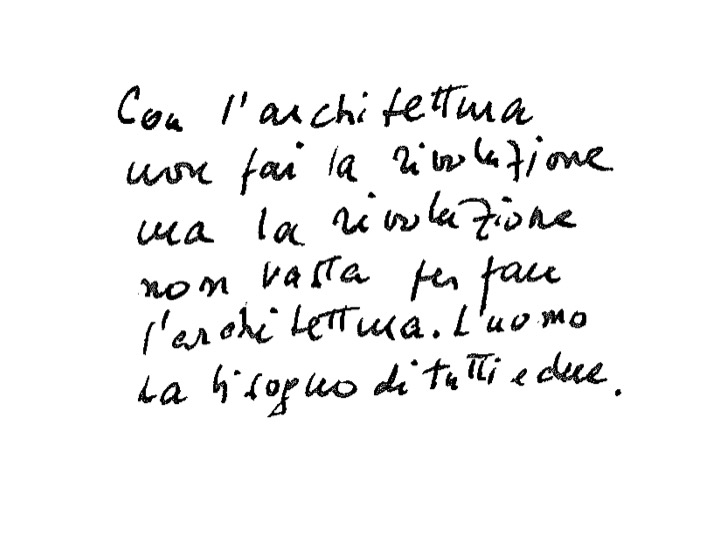 Con l'architettura
non fai la rivoluzione
ma la rivoluzione
non basta per fare
l'architettura. L'uomo
ha bisogno di tutti e due.